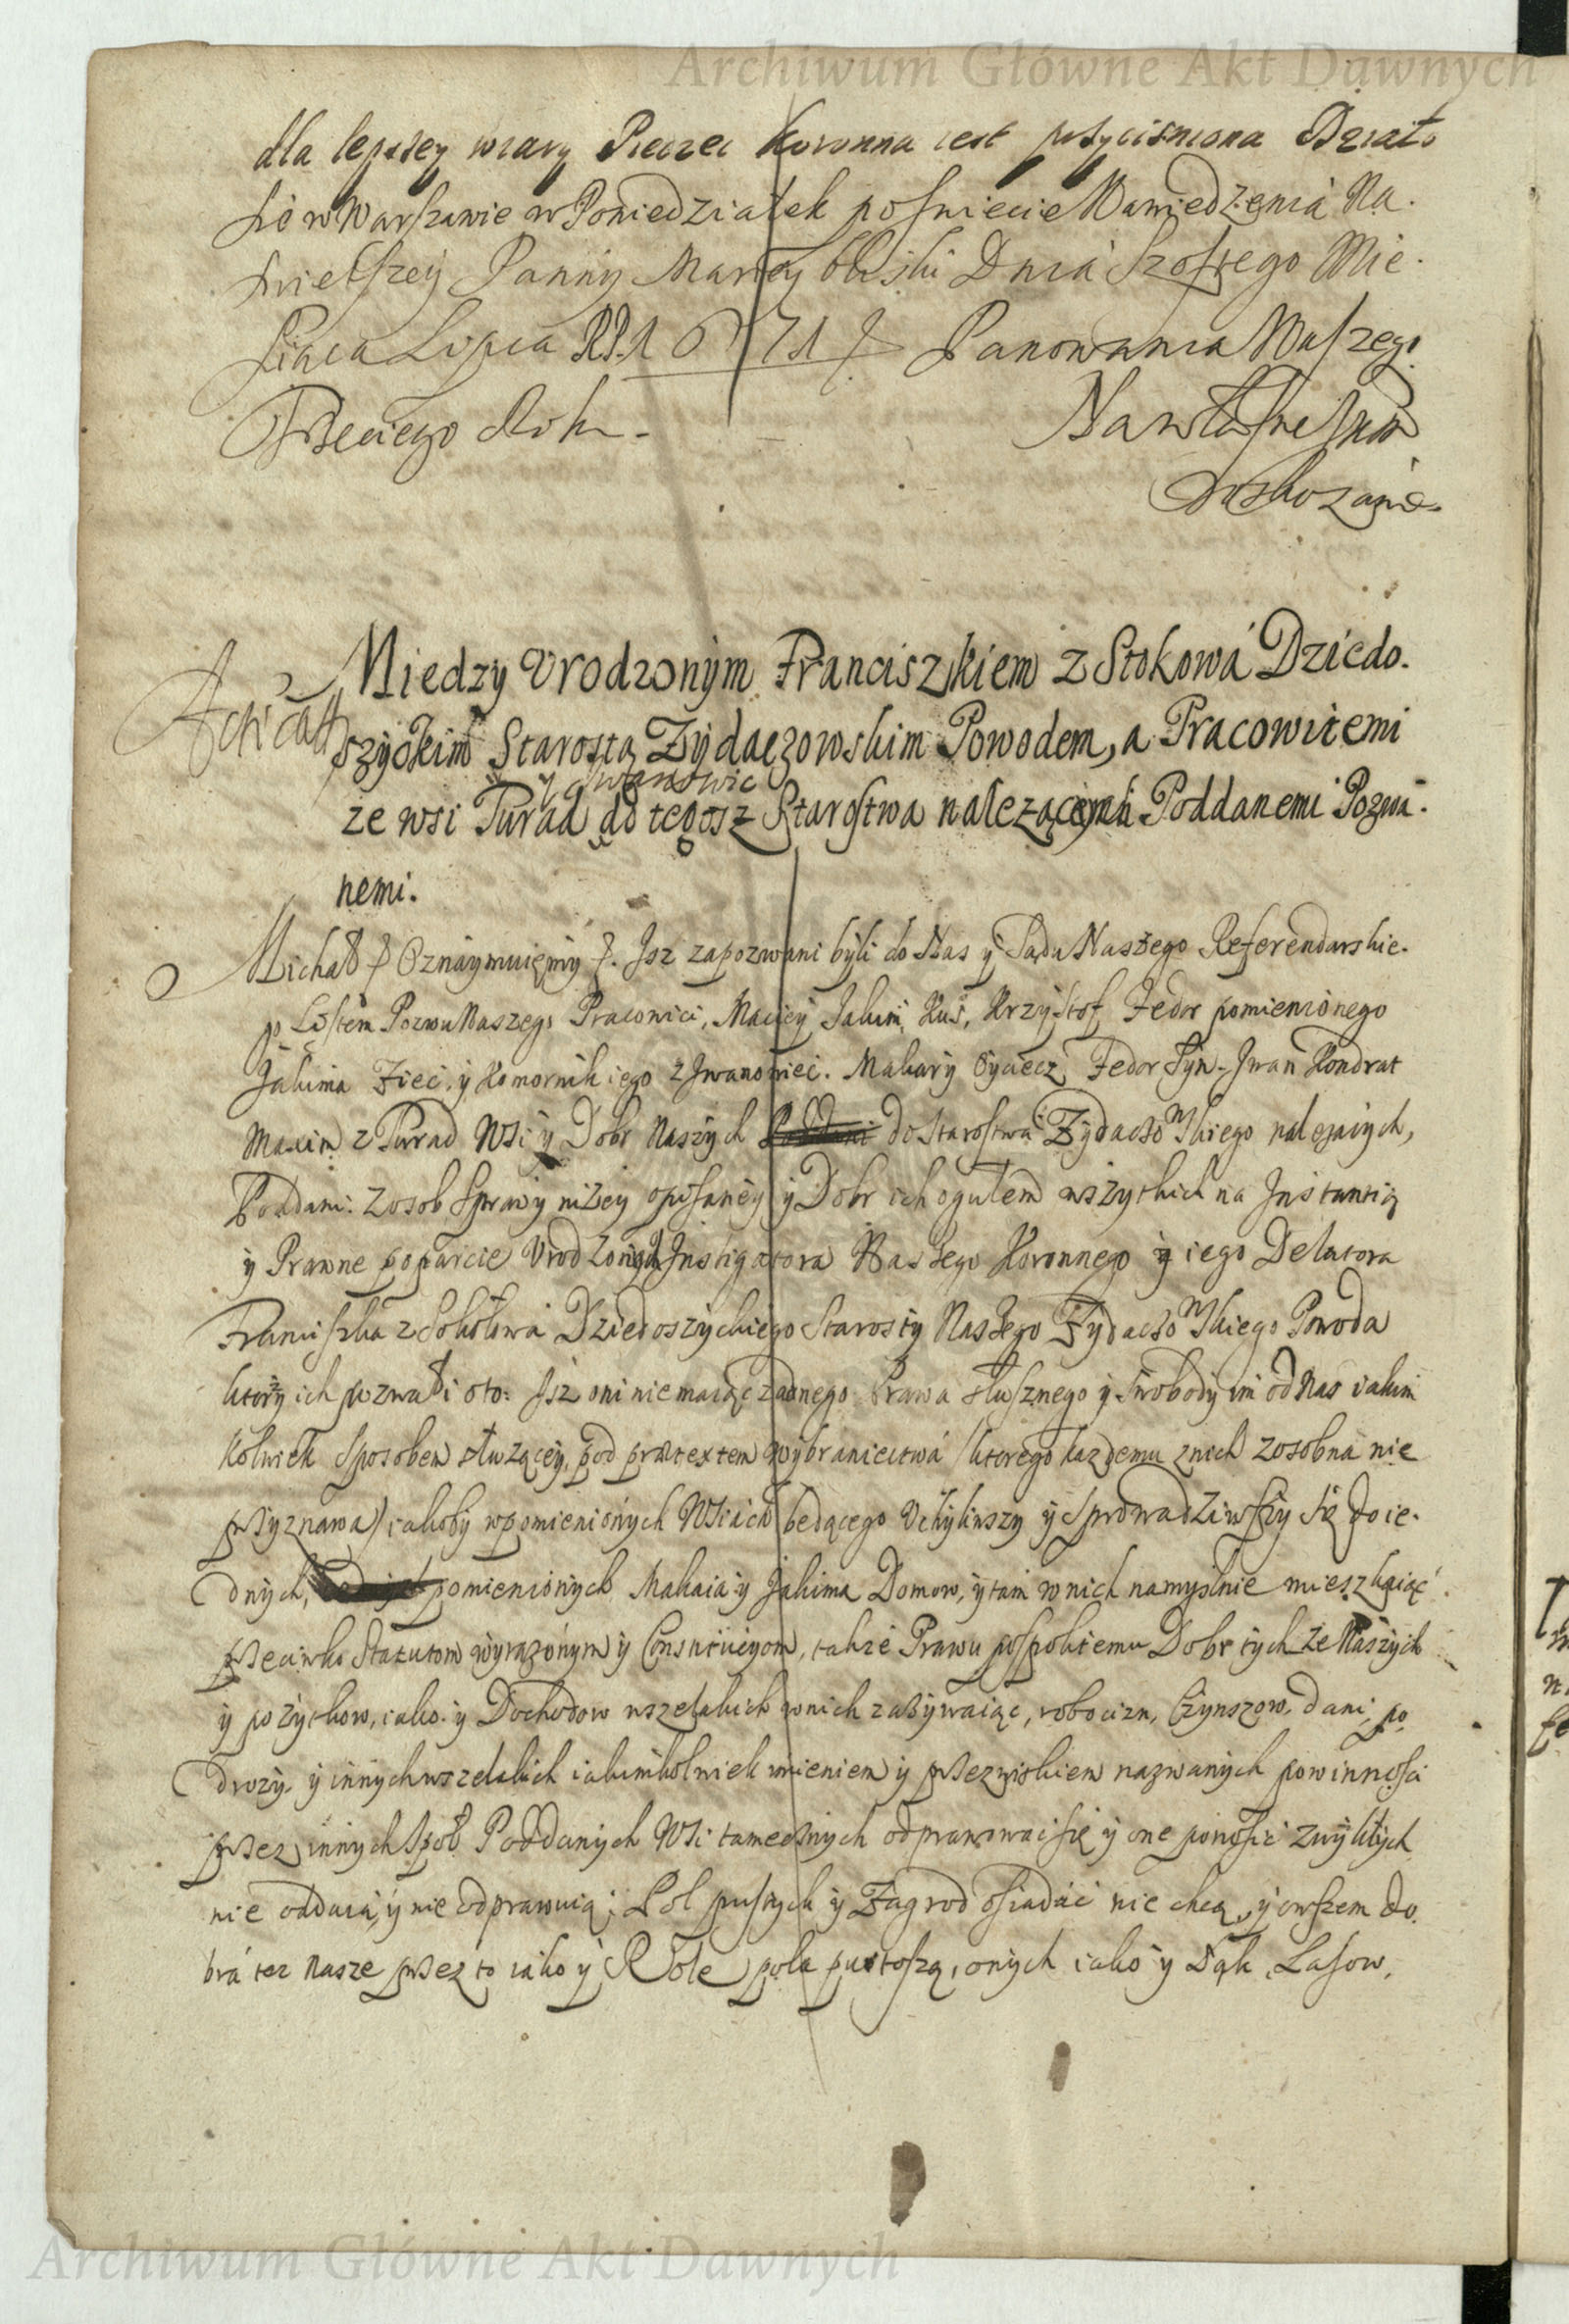 Archiwum Główne Akt Dawnych
dla lepszey wiary Pieczec Koronna iest przycisniona Dział
sie w Warszawie w Poniedziałek po swiecie Nawiedzenia Na.
swietszey Panny Maryey bliski Dnia Szostego Mie.
siąca Lipca R.P. 1671 Panowania Naszego
Trzeciego Roku.
Na własne
Miedzy Urodzonym Franciszkiem z Stokowa Dziedo.
Acticatt
szyckim Starostą Zydaczowskim Powodem, a Pracowitemi
y Iwanowic
ze wsi Turad do tegosz Starostwa nalezącemi Poddanemi Pozwa.
nemi.
Michał Oznaymuięmy. Isz zapozwani byli do Nas y Sądu Naszego Referendarskie.
go Listem Pozwu Naszego Pracowici, Maciey Jakim, Kus, Krzysztof, Fedor pomienionego
Jakima Zieci, y Komornik iego z Iwanowiec. Makary Oyciecz, Fedor Syn, Iwan Kondrat
Maxim z Turad Wsi y Dobr Naszych do Starostwa Zydaczowskiego nalezących,
Poddani: z osob Sprawy nizey opisaney y Dobr ich ogułem wszytkich na Instantią
y Prawne poparcie Urodzonych Instigatora Naszego Koronnego y iego Delatora
Franciszka z Sokołowa Dziedoszyckiego Starosty Naszego Zydaczowskiego Powoda
ktorzy ich pozwali oto: Isz oni nie maiąc zadnego Prawa słusznego y Swobody im od Nas iakim
kolwiek sposobem słuzącey, pod praetextem wybraniectwa /: ktorego kazdemu z nich zosobna nie
przyznawa) iakoby w pomienionych Wsiach będącego Uchyliwszy y sprowadziwszy się do ie.
dnych, pomienionych Makara y Jakima Domow, y tam w nich namyslnie mieszkaiąc
przeciwko Statutom wyrazonym y Constitucyom, takze Prawu pospolitemu Dobr tych ze Naszych
y pozytkow, iako y Dochodow wszelakich w nich zazywaiąc, robocizn, Czynszow, dani, po
drozy, y innych wszelakich iakimkolwiek imieniem y przezwiskiem nazwanych powinnosci
przez innych Poddanych Wsi tamecznych odprawowac się y one ponosic zwykłych
nie oddaią, y nie odprawuią; Pol pustych y Zagrod osiadac nie chcą, y owszem Do.
bra tez Nasze przez to iako y Role pola pustoszą, onych iako y Łąk, Lasow,
Archiwum Główne Akt Dawnych